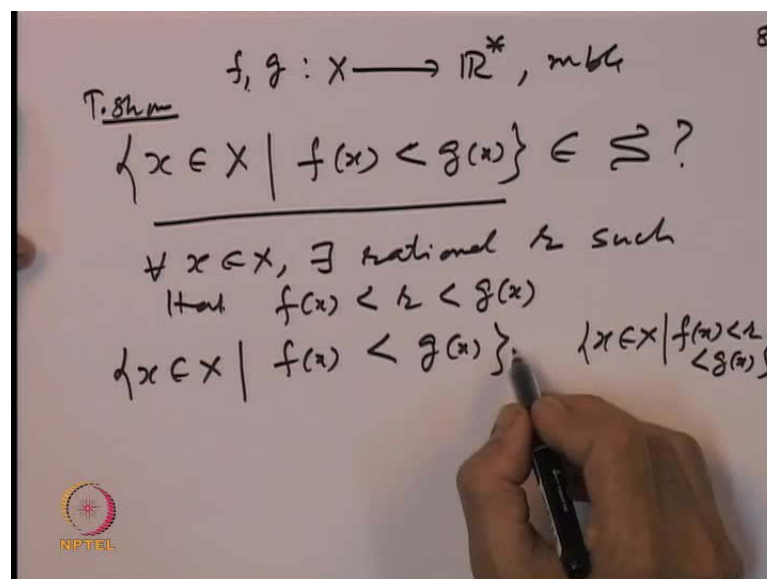 8
f, g : X ⟶ ℝ*, mble
T. Shm
{x ∈ X | f(x) < g(x)} ∈ S ?
∀ x ∈ X, ∃ rational r such
that f(x) < r < g(x)
{x ∈ X | f(x) < g(x)}
{x ∈ X | f(x) < r
< g(x)}
NPTEL